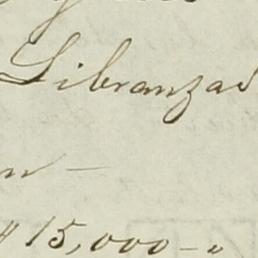 Libranzas
n —
$ 15,000 - "